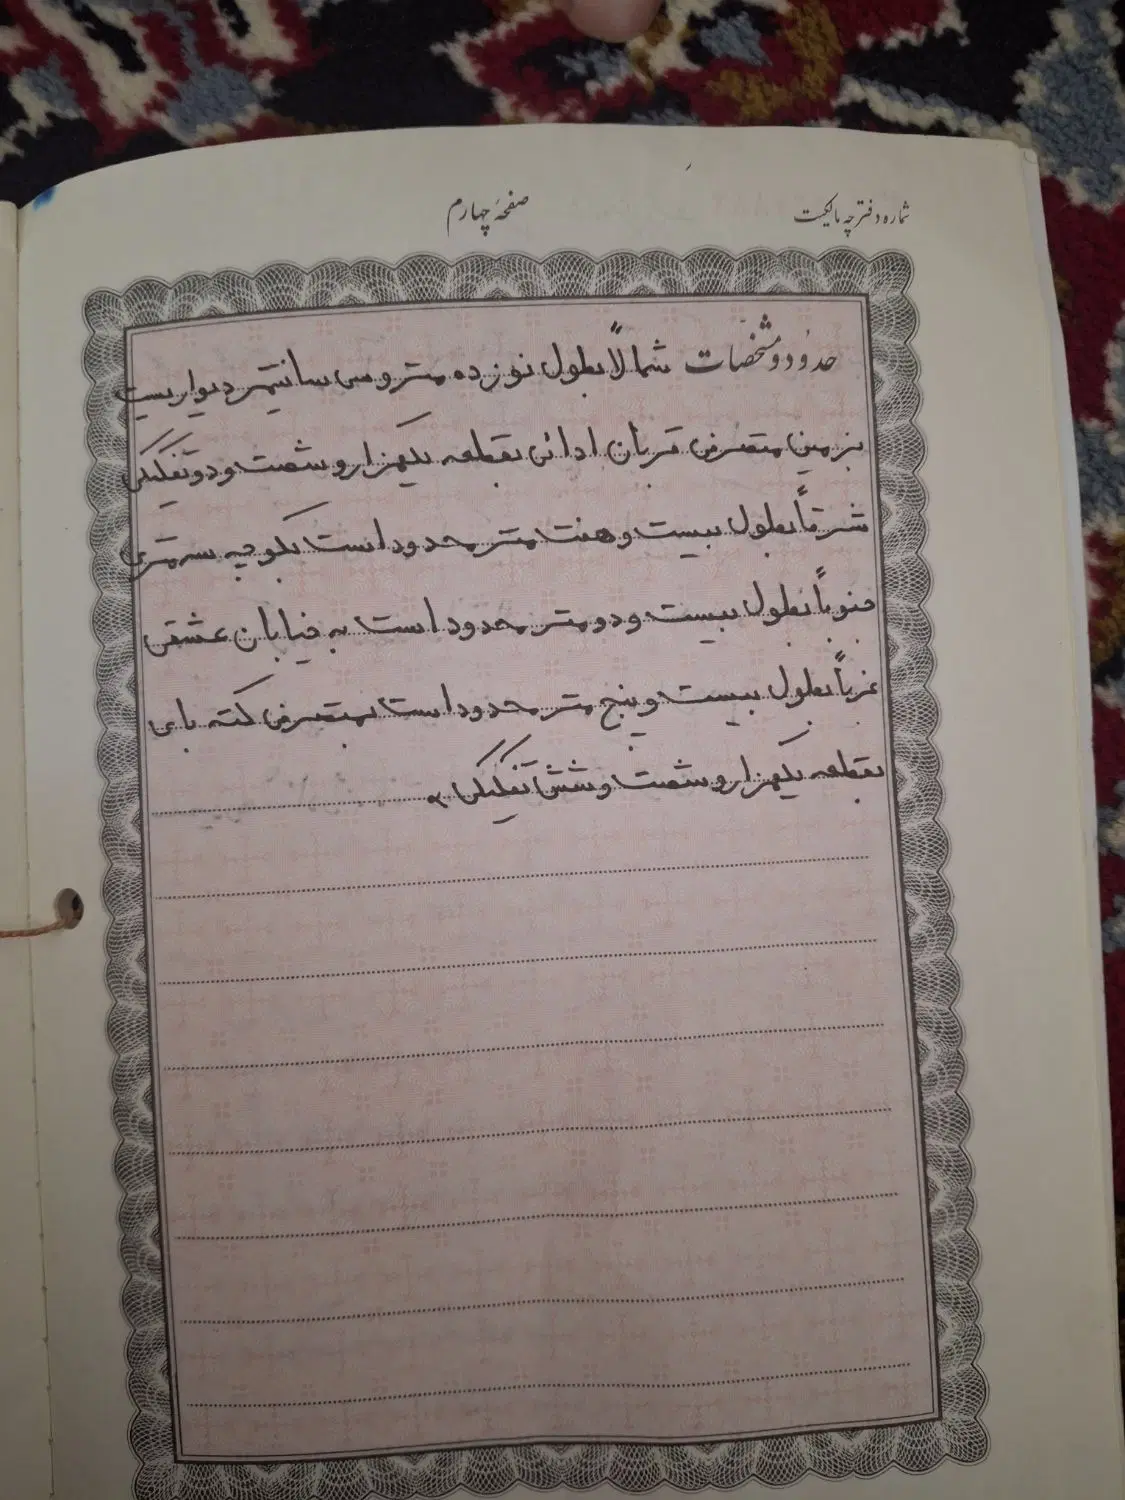 شماره دفترچه مالکیت
صفحه چهارم
حدود و مشخصات شمالاً بطول نوزده متر و سی سانتیمتر دیواریست
بزمین متصرفی قربان ادائی بقطعه یکهزار و شصت و دو تفکیکی
شرقاً بطول بیست و هفت متر محدود است بکوچه سه متری
جنوباً بطول بیست و دو متر محدود است به خیابان عشقی
غرباً بطول بیست و پنج متر محدود است بمتصرفی کته بای
بقطعه یکهزار و شصت و شش تفکیکی